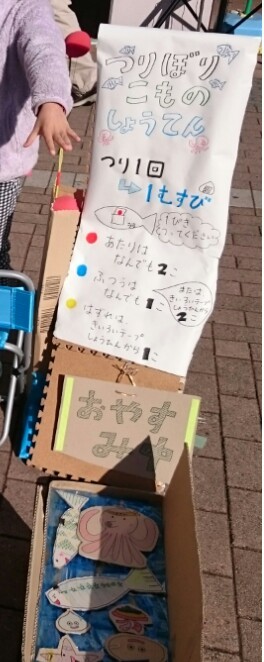 つりぼり
こもの
しょうてん
つり1回
→1むすび
1ぴき
つってください
あたりは
なんでも2こ
ふつうは
なんでも1こ
または
きいろいテープ
しょうひんから
2こ
はずれは
きいろいテープ
しょうひんから1こ
おやす
み中